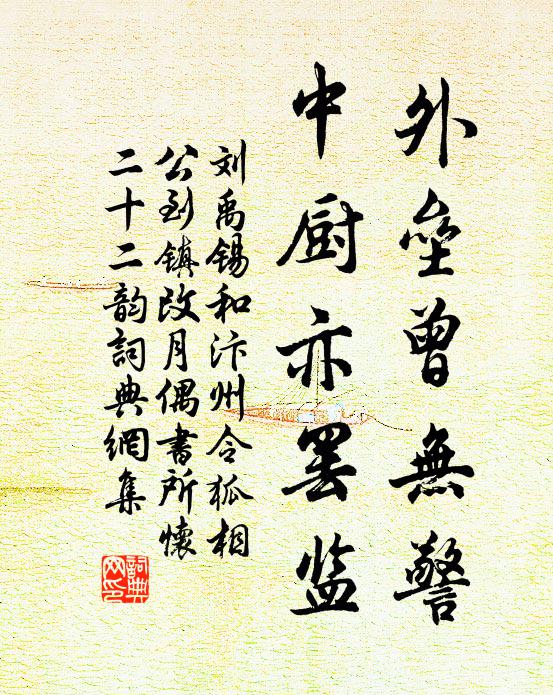 外壘曾無警
中厨亦罢监
刘禹锡和汴州令狐相
公到镇改月偶書所懷
二十二韵詞典網集
詞典
网印